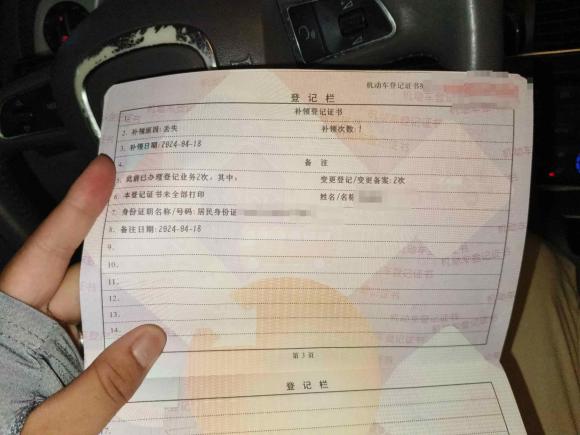 机动车登记证书
登记栏
1. 补领登记证书
2. 补领原因:丢失 补领次数:1
3. 补领日期:2024-04-18
4. 备 注
5. 此前已办理登记业务2次，其中: 变更登记/变更备案:2次
6. 本登记证书未全部打印 姓名/名称
7. 身份证明名称/号码:居民身份证
8. 备注日期:2024-04-18
9.
10.
11.
12.
13.
14.
第3页
登记栏